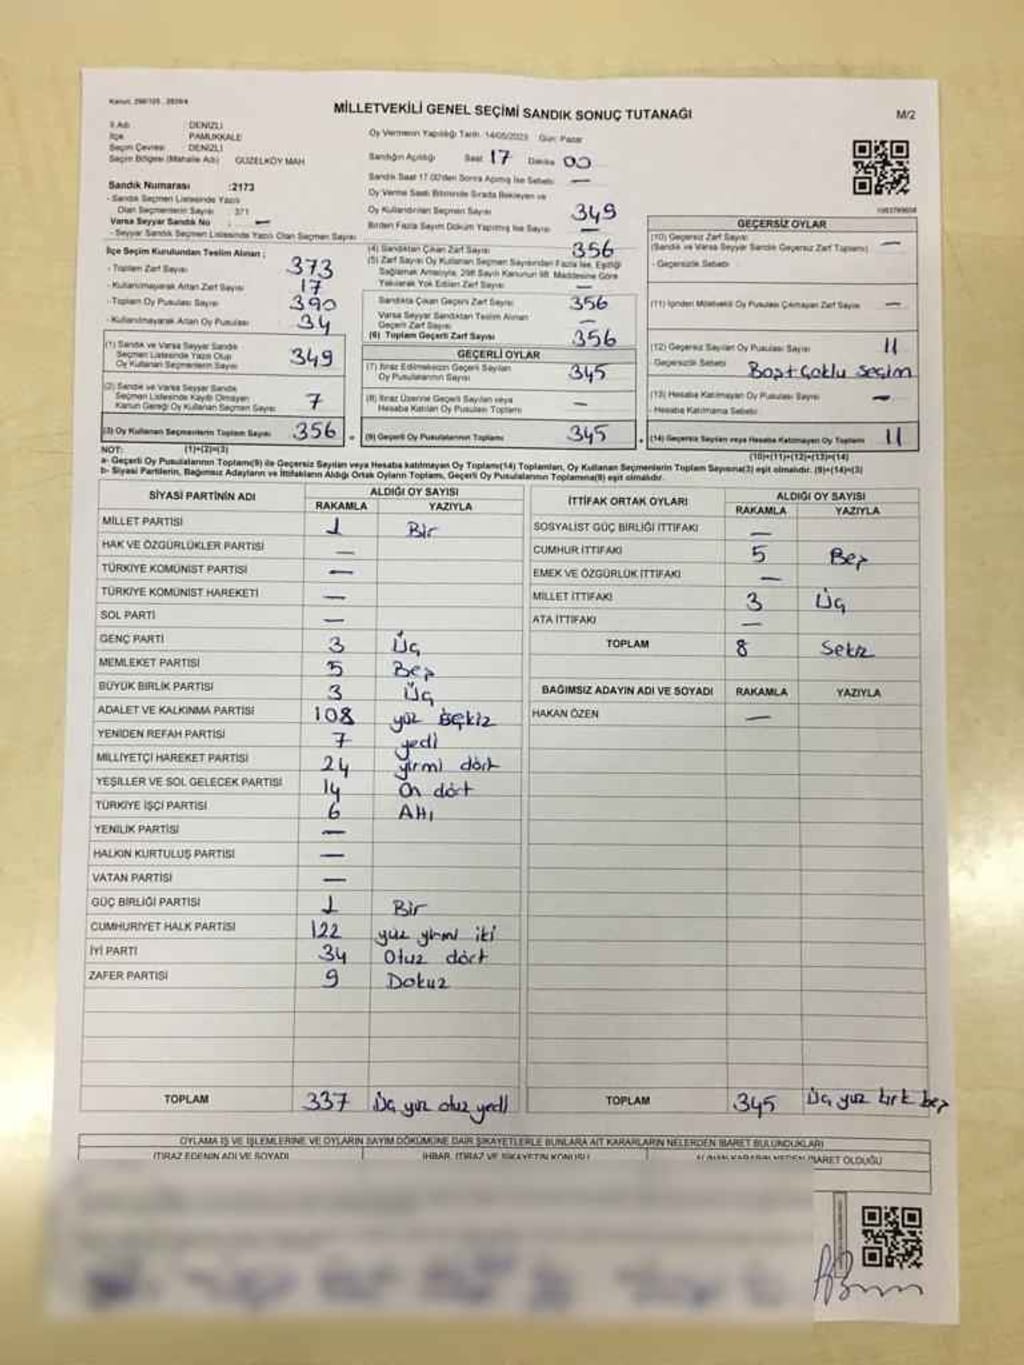 Kanun: 298/105 , 2839/4
MİLLETVEKİLİ GENEL SEÇİMİ SANDIK SONUÇ TUTANAĞI
M/2
İl Adı : DENİZLİ
İlçe : PAMUKKALE
Seçim Çevresi : DENİZLİ
Seçim Bölgesi (Mahalle Adı) GÜZELKÖY MAH
Oy Vermenin Yapıldığı Tarih: 14/05/2023 Gün: Pazar
Sandığın Açıldığı Saat 17 Dakika 00
Sandık Saat 17.00'den Sonra Açılmış İse Sebebi —
Oy Verme Saati Bitiminde Sırada Bekleyen ve
Oy Kullandırılan Seçmen Sayısı 349
Birden Fazla Sayım Döküm Yapılmış İse Sayısı —
Sandık Numarası :2173
- Sandık Seçmen Listesinde Yazılı
Olan Seçmenlerin Sayısı : 371
Varsa Seyyar Sandık No : —
- Seyyar Sandık Seçmen Listesinde Yazılı Olan Seçmen Sayısı
İlçe Seçim Kurulundan Teslim Alınan ;
- Toplam Zarf Sayısı 373
- Kullanılmayarak Artan Zarf Sayısı 17
- Toplam Oy Pusulası Sayısı 390
- Kullanılmayarak Artan Oy Pusulası 34
(1) Sandık ve Varsa Seyyar Sandık
Seçmen Listesinde Yazılı Olup
Oy Kullanan Seçmen Sayısı 349
(2) Sandık ve Varsa Seyyar Sandık
Seçmen Listesinde Kayıtlı Olmayan
Kanun Gereği Oy Kullanan Seçmen Sayısı 7
(3) Oy Kullanan Seçmenlerin Toplam Sayısı 356
(4) Sandıktan Çıkan Zarf Sayısı 356
(5) Zarf Sayısı Oy Kullanan Seçmen Sayısından Fazla İse, Eşitliği
Sağlamak Amacıyla, 298 Sayılı Kanunun 98. Maddesine Göre
Yakılarak Yok Edilen Zarf Sayısı —
Sandıkta Çıkan Geçerli Zarf Sayısı 356
Varsa Seyyar Sandıktan Teslim Alınan
Geçerli Zarf Sayısı —
(6) Toplam Geçerli Zarf Sayısı 356
GEÇERLİ OYLAR
(7) İtiraz Edilmeksizin Geçerli Sayılan
Oy Pusulalarının Sayısı 345
(8) İtiraz Üzerine Geçerli Sayılan veya
Hesaba Katılan Oy Pusulası Toplamı —
= (9) Geçerli Oy Pusulalarının Toplamı 345
GEÇERSİZ OYLAR
(10) Geçersiz Zarf Sayısı
(Sandık ve Varsa Seyyar Sandık Geçersiz Zarf Toplamı) —
- Geçersizlik Sebebi
(11) İçinden Milletvekili Oy Pusulası Çıkmayan Zarf Sayısı —
(12) Geçersiz Sayılan Oy Pusulası Sayısı 11
- Geçersizlik Sebebi Boş+Çoklu Seçim
(13) Hesaba Katılmayan Oy Pusulası Sayısı —
- Hesaba Katılmama Sebebi
+ (14) Geçersiz Sayılan veya Hesaba Katılmayan Oy Toplamı 11
NOT: (1)+(2)=(3) (10)+(11)+(12)+(13)=(14)
a- Geçerli Oy Pusulalarının Toplamı(9) ile Geçersiz Sayılan veya Hesaba katılmayan Oy Toplamı(14) Toplamları, Oy Kullanan Seçmenlerin Toplam Sayısına(3) eşit olmalıdır. (9)+(14)=(3)
b- Siyasi Partilerin, Bağımsız Adayların ve İttifakların Aldığı Ortak Oyların Toplamı, Geçerli Oy Pusulalarının Toplamına(9) eşit olmalıdır.
SİYASİ PARTİNİN ADI ALDIĞI OY SAYISI
RAKAMLA YAZIYLA
MİLLET PARTİSİ 1 Bir
HAK VE ÖZGÜRLÜKLER PARTİSİ —
TÜRKİYE KOMÜNİST PARTİSİ —
TÜRKİYE KOMÜNİST HAREKETİ —
SOL PARTİ —
GENÇ PARTİ 3 Üç
MEMLEKET PARTİSİ 5 Beş
BÜYÜK BİRLİK PARTİSİ 3 Üç
ADALET VE KALKINMA PARTİSİ 108 yüz sekiz
YENİDEN REFAH PARTİSİ 7 yedi
MİLLİYETÇİ HAREKET PARTİSİ 24 yirmi dört
YEŞİLLER VE SOL GELECEK PARTİSİ 14 On dört
TÜRKİYE İŞÇİ PARTİSİ 6 Altı
YENİLİK PARTİSİ —
HALKIN KURTULUŞ PARTİSİ —
VATAN PARTİSİ —
GÜÇ BİRLİĞİ PARTİSİ 1 Bir
CUMHURİYET HALK PARTİSİ 122 yüz yirmi iki
İYİ PARTİ 34 Otuz dört
ZAFER PARTİSİ 9 Dokuz
TOPLAM 337 Üç yüz otuz yedi
İTTİFAK ORTAK OYLARI ALDIĞI OY SAYISI
RAKAMLA YAZIYLA
SOSYALİST GÜÇ BİRLİĞİ İTTİFAKI —
CUMHUR İTTİFAKI 5 Beş
EMEK VE ÖZGÜRLÜK İTTİFAKI —
MİLLET İTTİFAKI 3 Üç
ATA İTTİFAKI —
TOPLAM 8 Sekiz
BAĞIMSIZ ADAYIN ADI VE SOYADI RAKAMLA YAZIYLA
HAKAN ÖZEN —
TOPLAM 345 Üç yüz kırk beş
OYLAMA İŞ VE İŞLEMLERİNE VE OYLARIN SAYIM DÖKÜMÜNE DAİR ŞİKAYETLERLE BUNLARA AİT KARARLARIN NELERDEN İBARET BULUNDUKLARI
İTİRAZ EDENİN ADI VE SOYADI İHBAR, İTİRAZ VE ŞİKAYETİN KONUSU ALINAN KARARIN NEDEN İBARET OLDUĞU